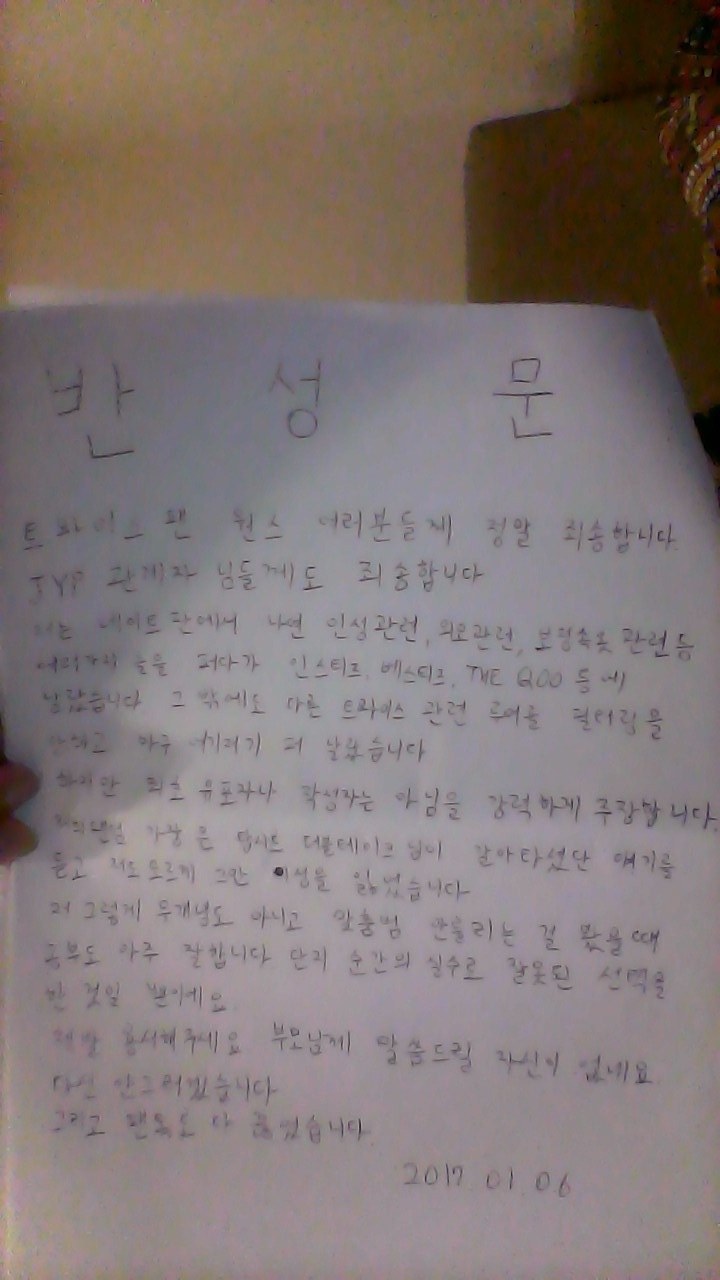 반 성 문
트와이스 팬 원스 여러분들께 정말 죄송합니다
JYP 관계자 님들께도 죄송합니다
저는 네이트 판에서 나연 인성관련, 외모관련, 보정속옷 관련 등
여러가지 글을 퍼다가 인스티즈, 베스티즈, THE QOO 등에
날랐습니다 그 밖에도 다른 트와이스 관련 루머를 필터링을
안하고 마구 여기저기 퍼 날랐습니다
하지만 최초 유포자나 작성자는 아님을 강력하게 주장합니다
가장 은 탑시드 더블테이크 님이 갈아타셨단 얘기를
듣고 저도 모르게 그만 이성을 잃었습니다
저 그렇게 무개념도 아니고 맞춤법 안틀리는 걸 봤을때
공부도 아주 잘합니다 단지 순간의 실수로 잘못된 선택을
한 것일 뿐이에요
제발 용서해주세요 부모님께 말씀드릴 자신이 없네요
다신 안그러겠습니다
그리고 팬톡도 다 끊었습니다
2017 01 06